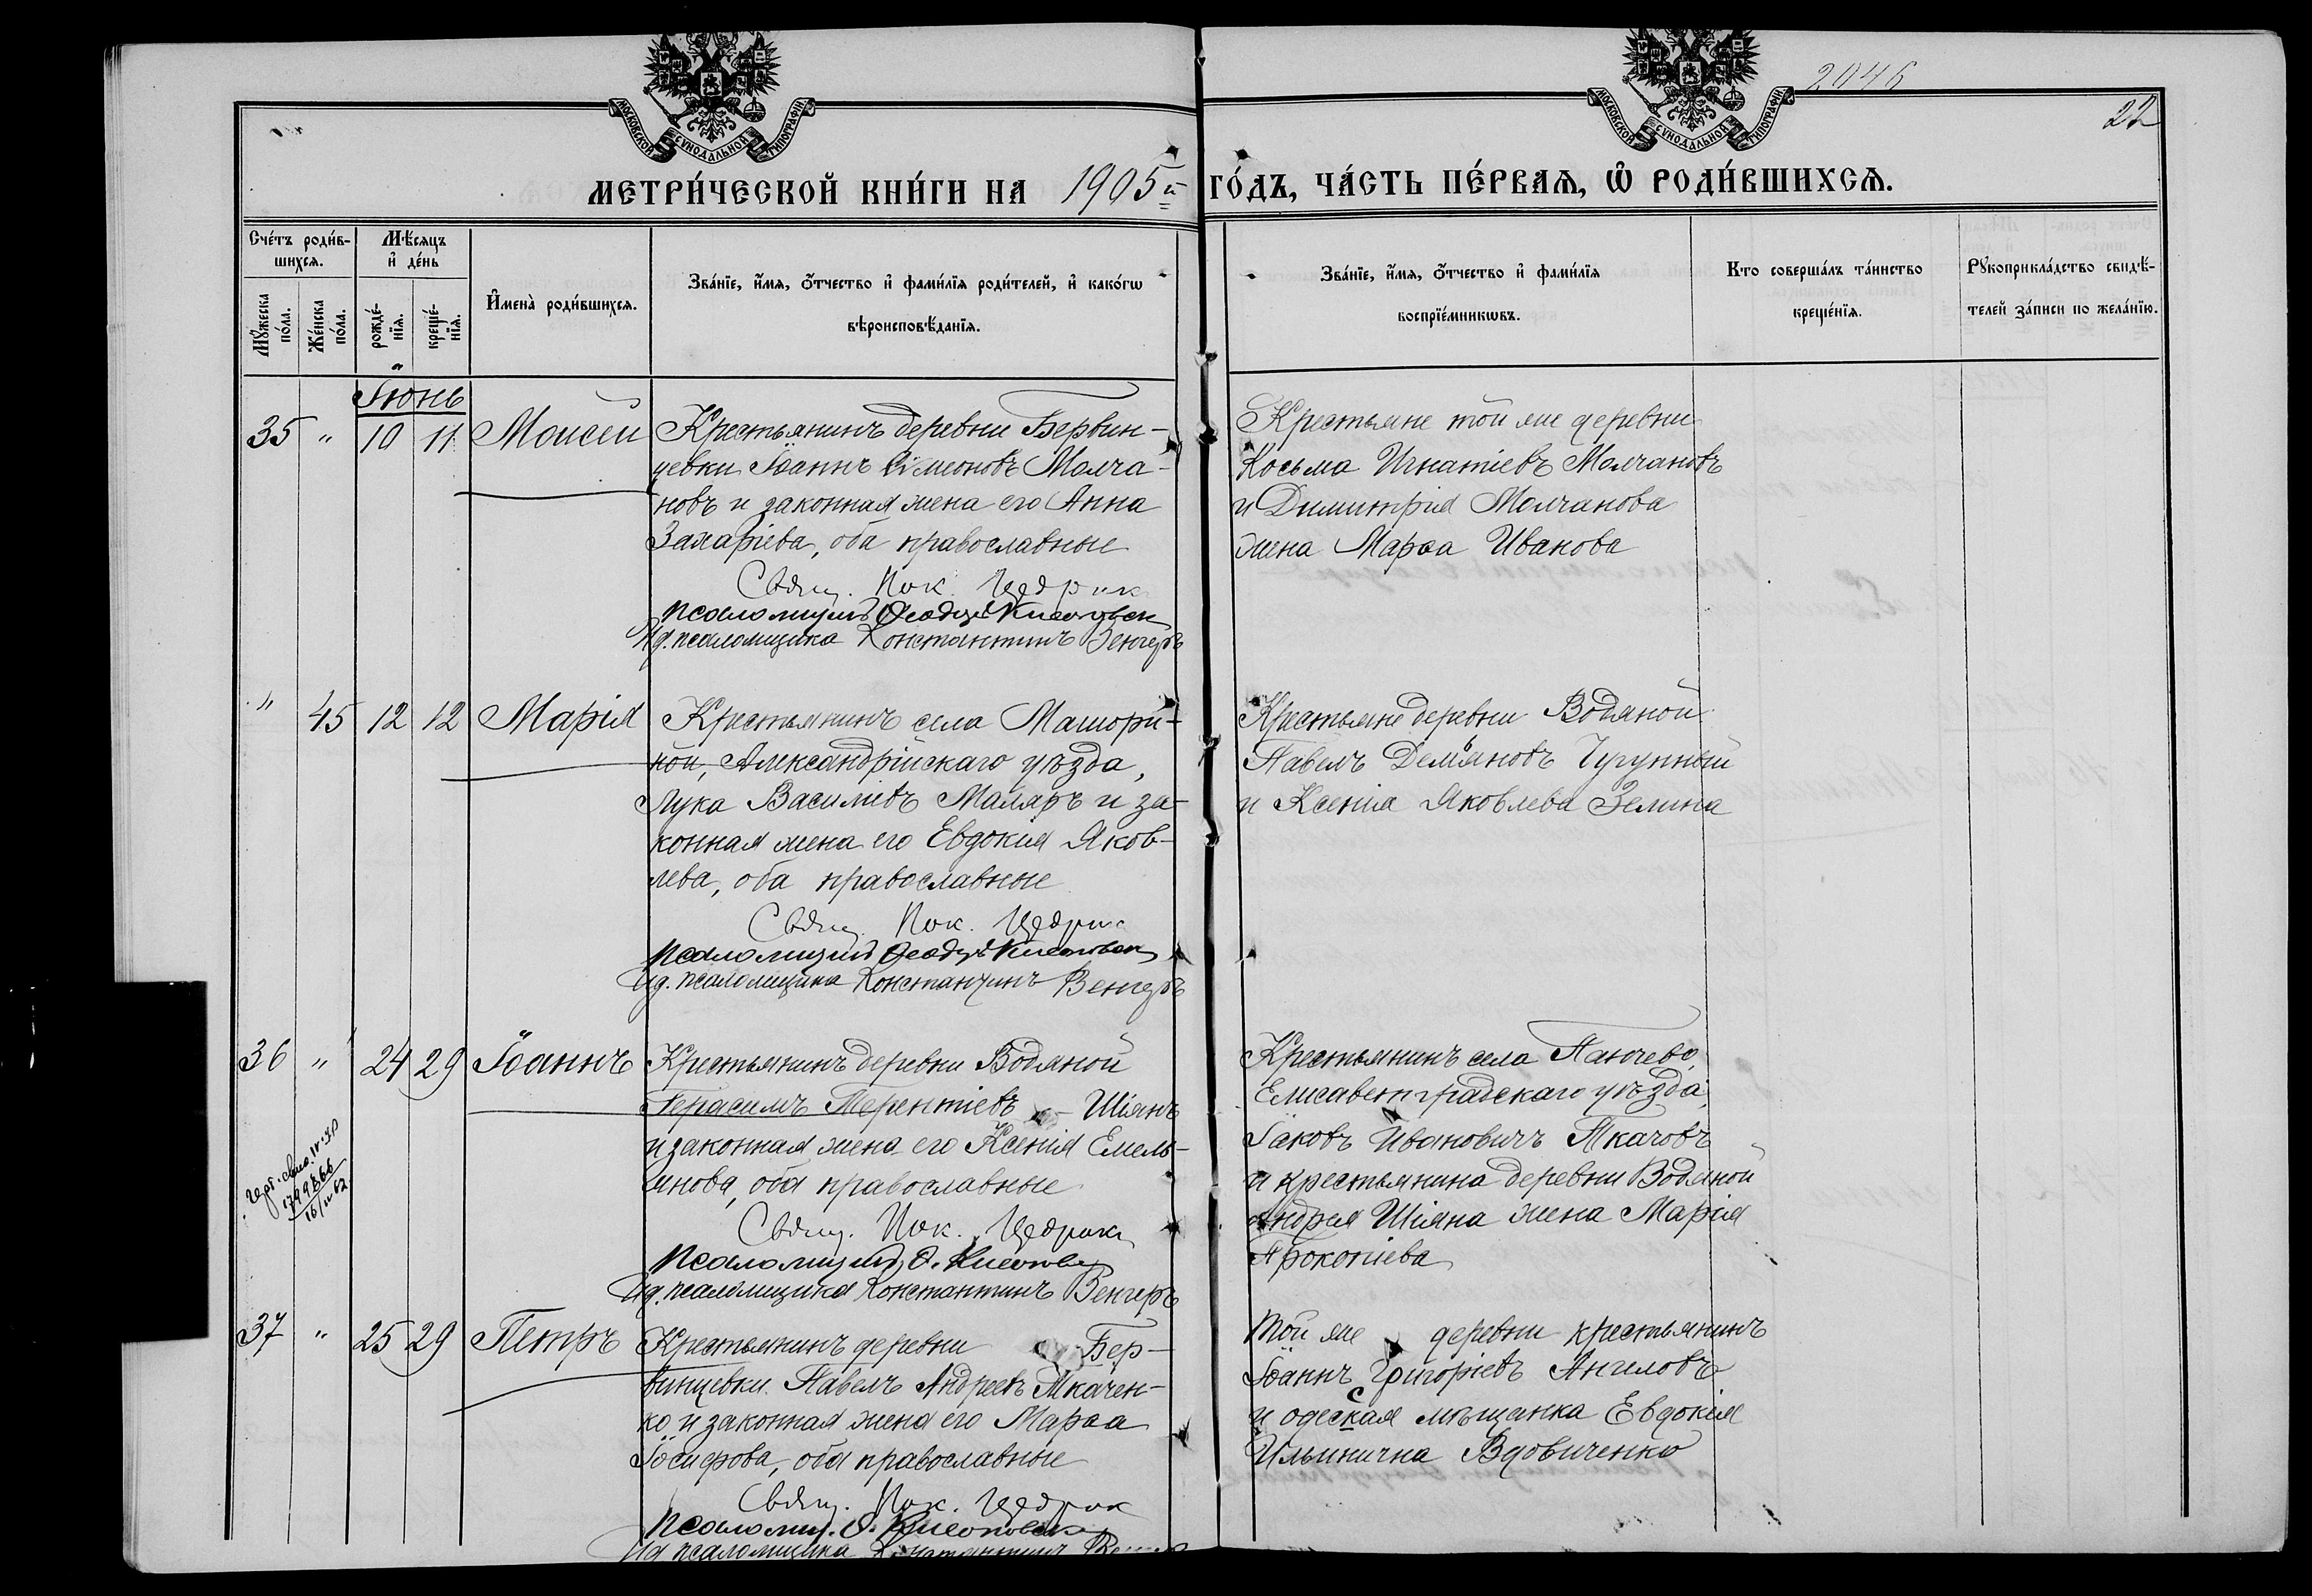 2046
22
МОСКОВСКОЙ СѴНОДАЛЬНОЙ ТИПОГРАФІИ
МОСКОВСКОЙ СѴНОДАЛЬНОЙ ТИПОГРАФІИ
МЕТРИ́ЧЕСКОЙ КНИ́ГИ НА 1905й ГО́ДЪ, ЧА́СТЬ ПЕ́РВАЯ, Ѡ҆ РОДИ́ВШИХСЯ.
Сче́тъ роди́в-
шихся.
Мꙋ́жеска по́ла.
Же́нска по́ла.
Мѣ́сяцъ
и҆ де́нь
рожде́-
нїя.
креще́-
нїя.
И҆мена̀ роди́вшихся.
Зва́нїе, и҆́мя, ѻ҆́тчество и҆ фами́лїя роди́телей, и҆ како́гѡ
вѣроисповѣ́данїя.
Зва́нїе, и҆́мя, ѻ҆́тчество и҆ фами́лїя
воспрїе́мникѡвъ.
Кто̀ соверша́лъ та́инство
креще́нїя.
Рꙋкоприкла́дство свидѣ́-
телей за́писи по жела́нїю.
Іюнь
35 " 10 11 Моисей
Крестьянинъ деревни Бервин-
цевки Іоаннъ Симеоновъ Молча-
новъ и законная жена его Анна
Захаріева, оба православные
Свящ. Пок. Щедрик
Псаломщикъ Ѳеодоръ
И.д. псаломщика Константинъ Венгеръ
Крестьяне той же деревни
Косьма Игнатіевъ Молчановъ
и Димитрія Молчанова
жена Марѳа Иванова
" 45 12 12 Марія
Крестьянинъ села Машори-
ной, Александрійскаго уѣзда,
Лука Василіевъ Маляръ и за-
конная жена его Евдокія Яков-
лева, оба православные
Свящ. Пок. Щедрик
Псаломщикъ Ѳеодоръ
И.д. псаломщика Константинъ Венгеръ
Крестьяне деревни Водяной
Павелъ Демьяновъ Чугунный
и Ксенія Яковлева Зелина
36 " 24 29 Іоаннъ
Крестьянинъ деревни Водяной
Герасимъ Терентіевъ Шіянъ
и законная жена его Ксенія Емель-
янова, оба православные
Свящ. Пок. Щедрик
Псаломщикъ Ѳ.
И.д. псаломщика Константинъ Венгеръ
Крестьянинъ села Панчево,
Елисаветградскаго уѣзда,
Іаковъ Ивановичъ Ткачовъ
и крестьянина деревни Водяной
Андрея Шіяна жена Марія
Прокопіева
37 " 25 29 Петръ
Крестьянинъ деревни Бер-
винцевки Павелъ Андреевъ Ткачен-
ко и законная жена его Марѳа
Іосифова, оба православные
Свящ. Пок. Щедрик
Псаломщ. Ѳ.
И.д. псаломщика Константинъ
Той же деревни крестьянинъ
Іоаннъ Григоріевъ Ангиловъ
и одесская мѣщанка Евдокія
Ильинична Вдовиченко